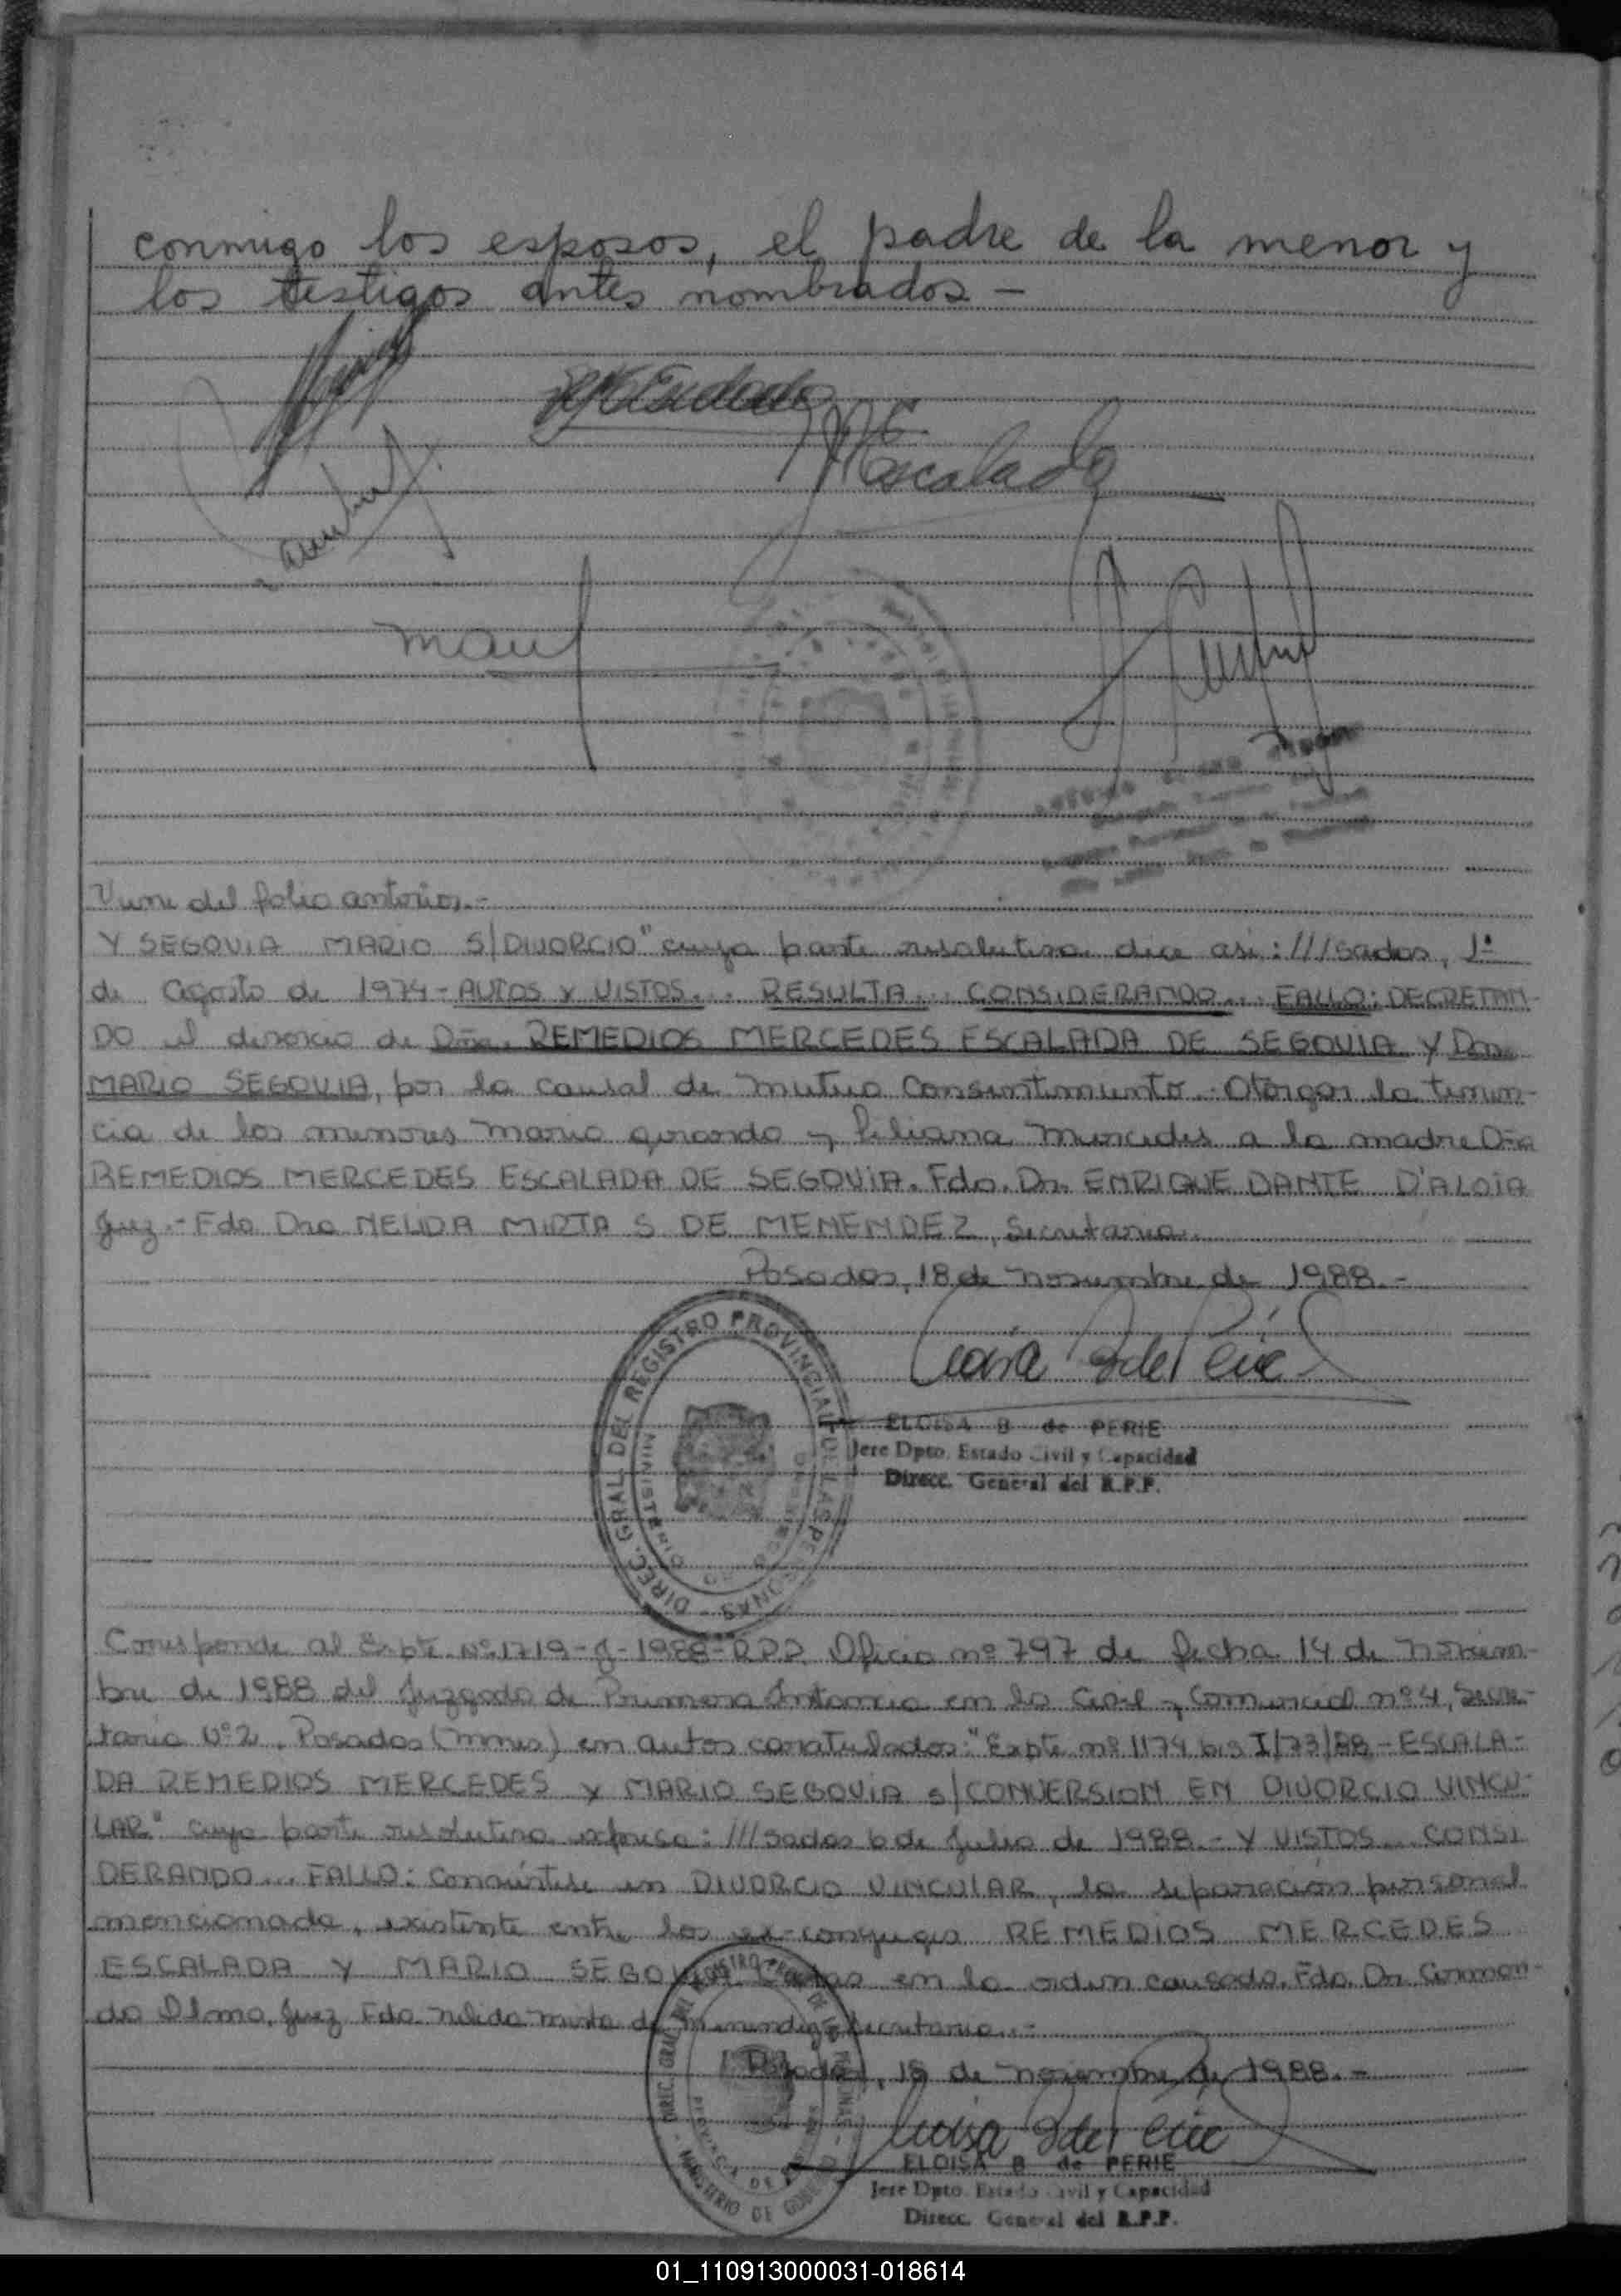 conmigo los esposos, el padre de la menor y
los testigos antes nombrados -
Escalada
Viene del folio anterior.-
Y SEGOVIA MARIO S/DIVORCIO" cuya parte resolutiva dice asi: ///sadas, 1º
de Agosto de 1974 - AUTOS Y VISTOS... RESULTA... CONSIDERANDO... FALLO: DECRETAN-
DO el divorcio de Dña. REMEDIOS MERCEDES ESCALADA DE SEGOVIA Y Don
MARIO SEGOVIA, por la causal de mutuo consentimiento. Otorgar la tenen-
cia de los menores Mario Gerardo y Liliana Mercedes a la madre Dña
REMEDIOS MERCEDES ESCALADA DE SEGOVIA. Fdo. Dr. ENRIQUE DANTE D'ALOIA
Juez.- Fdo Dra NELIDA MIRTA S DE MENENDEZ, Secretaria.
Posadas, 18 de noviembre de 1988.-
DIREC. GRAL. DEL REGISTRO PROVINCIAL DE LAS PERSONAS -
ELOISA B de PERIE
Jefe Dpto. Estado Civil y Capacidad
Direcc. General del R.P.P.
Corresponde al Expte. Nº 1719-J-1988-R.P.P. Oficio nº 797 de fecha 14 de noviem-
bre de 1988 del Juzgado de Primera Instancia en lo Civil y Comercial nº 4, Secre-
taria Nº 2, Posadas (Mnes) en autos caratulados: "Expte nº 1174 bis I/73/88 - ESCALA-
DA REMEDIOS MERCEDES Y MARIO SEGOVIA s/CONVERSION EN DIVORCIO VINCU-
LAR" cuya parte resolutiva expresa: ///sadas 6 de Julio de 1988.- Y VISTOS... CONSI
DERANDO... FALLO: Conviértese en DIVORCIO VINCULAR, la separación personal
mencionada, existente entre los ex-conyuges REMEDIOS MERCEDES
ESCALADA Y MARIO SEGOVIA Costas en la orden causado. Fdo. Dr.
Olmo, Juez Fdo. Nelida Mirta de Menendez Secretaria.-
Posadas, 18 de noviembre de 1988.-
ELOISA B de PERIE
Jefe Dpto. Estado Civil y Capacidad
Direcc. General del R.P.P.
01_110913000031-018614